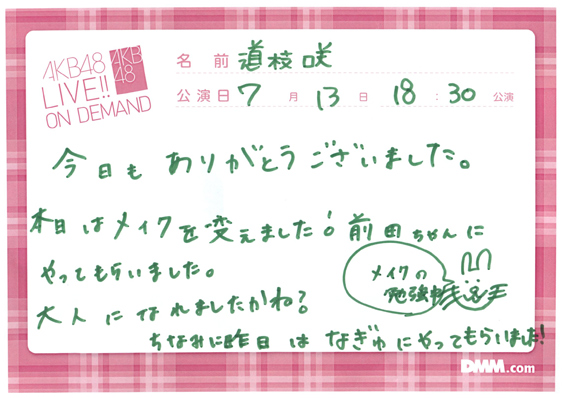 AKB48
LIVE!!
ON DEMAND
AKB
48
名前 道枝 咲
公演日 7月 13日 18:30 公演
今日も ありがとうございました。
本日はメイクを変えました! 前田ちゃんに
やってもらいました。
メイクの
勉強中
大人になれましたかね?
ちなみに昨日は なぎゅにやってもらいました!
DMM.com